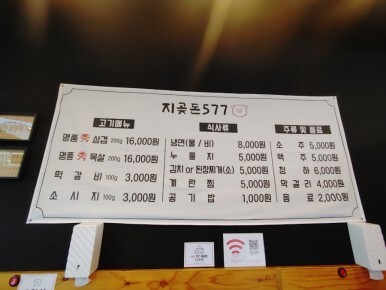 지곶돈577
고기메뉴
명품 秀 삼겹 200g 16,000원
명품 秀 목살 200g 16,000원
떡갈비 100g 3,000원
소시지 100g 3,000원
식사류
냉면(물/비) 8,000원
누룽지 5,000원
김치 or 된장찌개(소) 5,000원
계란찜 5,000원
공기밥 1,000원
주류 및 음료
소주 5,000원
맥주 5,000원
청하 6,000원
막걸리 4,000원
음료 2,000원